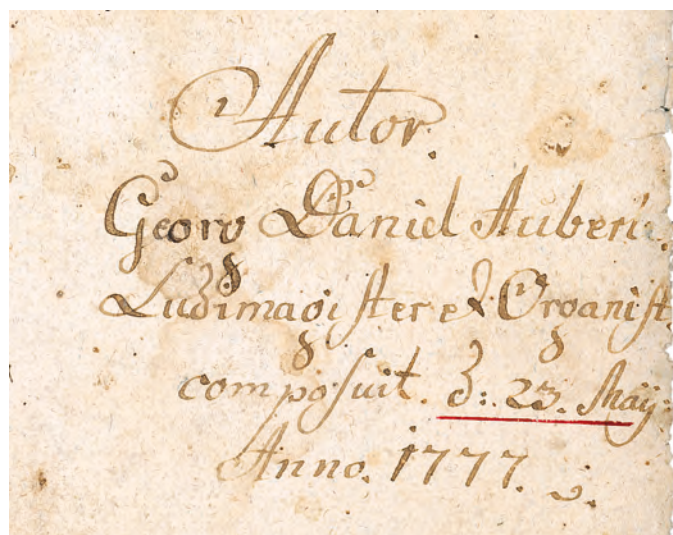 Autor.
Georg Daniel Auberl.
Ludimagister et Organist
composuit. d: 23. Maÿ:
Anno. 1777.